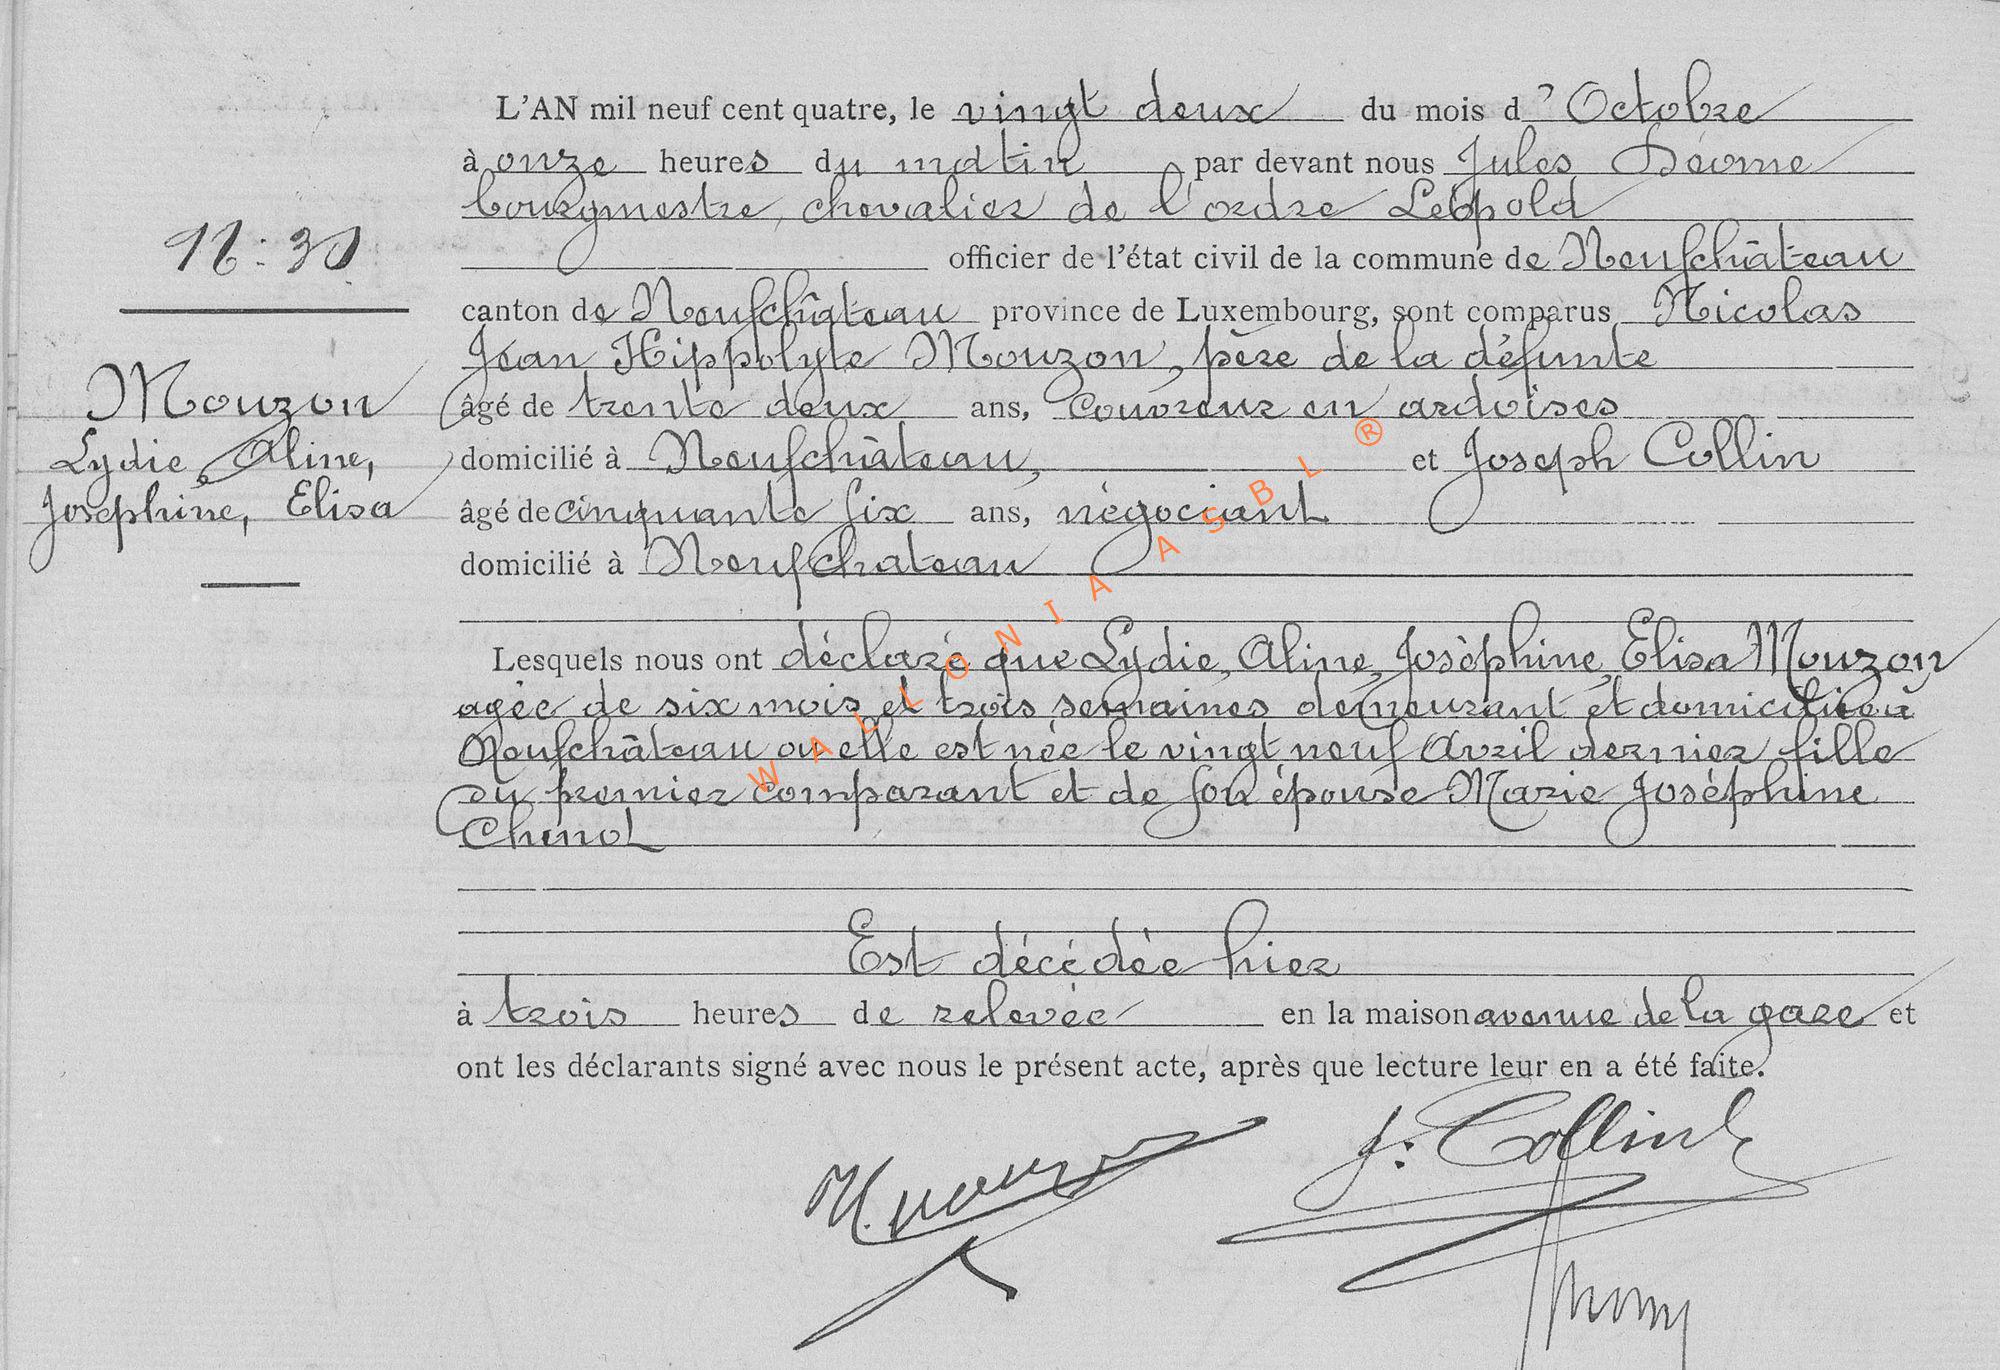 L'AN mil neuf cent quatre, le vingt deux du mois d'Octobre
à onze heures du matin par devant nous Jules
bourgmestre, chevalier de l'ordre Léopold
N: 30
officier de l'état civil de la commune de Neufchâteau
canton de Neufchâteau province de Luxembourg, sont comparus Nicolas
Jean Hippolyte Mouzon, père de la défunte
Mouzon
Lydie Aline,
Joséphine, Elisa
âgé de trente deux ans, couvreur en ardoises
domicilié à Neufchâteau, et Joseph Collin
âgé de cinquante six ans, négociant
domicilié à Neufchateau
Lesquels nous ont déclaré que Lydie, Aline, Joséphine, Elisa Mouzon
agée de six mois et trois semaines demeurant et domiciliée à
Neufchâteau ou elle est née le vingt neuf Avril dernier fille
du premier comparant et de son épouse Marie Joséphine
Chenot
Est décédée hier
à trois heures de relevée en la maison avenue de la gare et
ont les déclarants signé avec nous le présent acte, après que lecture leur en a été faite.
J. Collin
WALLONIA ASBL ®